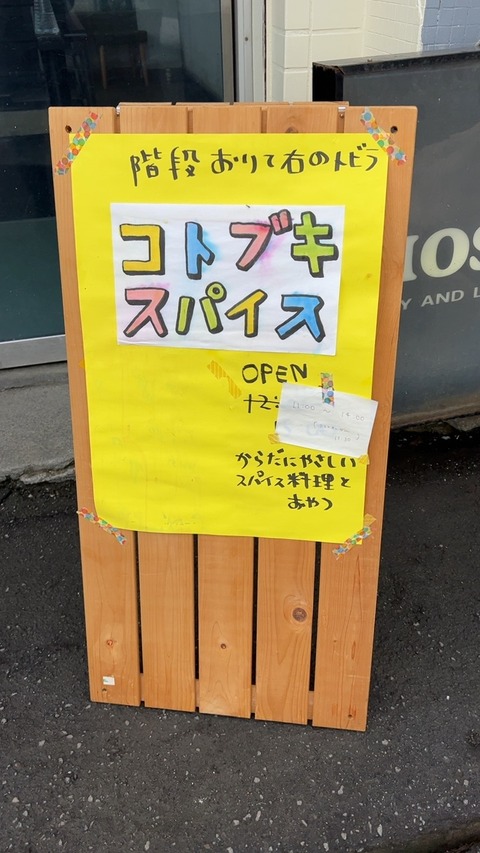 階段おりて右のトビラ
コトブキ
スパイス
OPEN
12:
11:00 ~ 16:00
からだにやさしい
スパイス料理と
おやつ
IOS
Y AND L